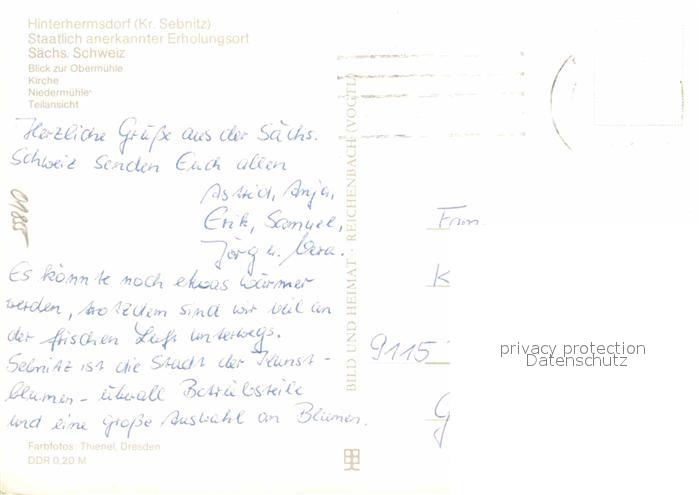 Hinterhermsdorf (Kr. Sebnitz)
Staatlich anerkannter Erholungsort
Sächs. Schweiz
Blick zur Obermühle
Kirche
Niedermühle
Teilansicht
Herzliche Grüße aus der Sächs.
Schweiz senden Euch allen
Astrid, Anja,
Erik, Samuel,
Jörg u. Vera.
Es könnte noch etwas wärmer
werden, trotzdem sind wir viel an
der frischen Luft unterwegs.
Sebnitz ist die Stadt der Kunst-
blumen - überall Betriebsteile
und eine große Auswahl an Blumen.
Farbfotos: Thienel, Dresden
DDR 0,20 M
01855
BILD UND HEIMAT · REICHENBACH (VOGTL)
Fam.
K
9115
G
privacy protection
Datenschutz